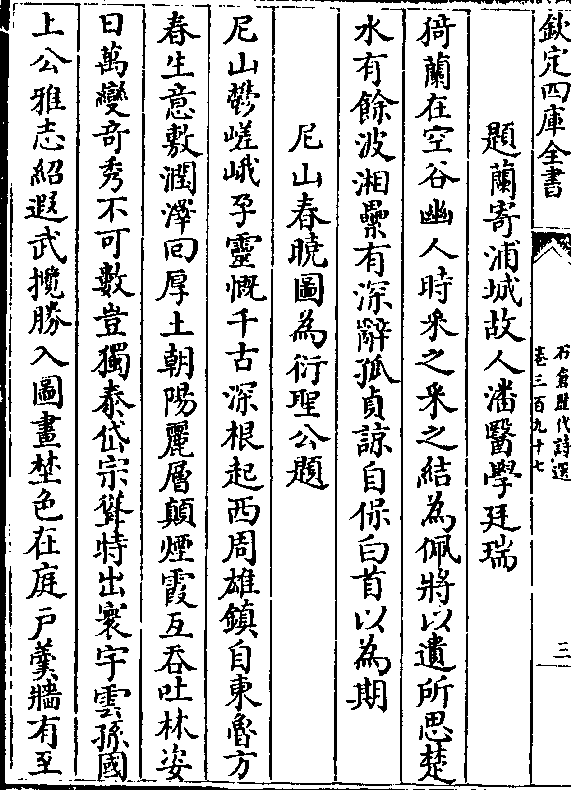 欽定四庫全書
石倉歷代詩選
卷三百九十七
三
題蘭寄浦城故人潘醫學廷瑞
猗蘭在空谷幽人時采之采之結為佩將以遺所思楚
水有餘波湘纍有深辭孤貞諒自保白首以為期
尼山春曉圖為衍聖公題
尼山鬱嵯峨孕靈慨千古深根起西周雄鎮自東魯方
春生意敷潤澤回厚土朝陽麗層顛煙霞互吞吐林姿
日萬變奇秀不可數豈獨泰岱宗聳特出寰宇雲孫國
上公雅志紹遐武攬勝入圖畫埜色在庭戶羹牆有至